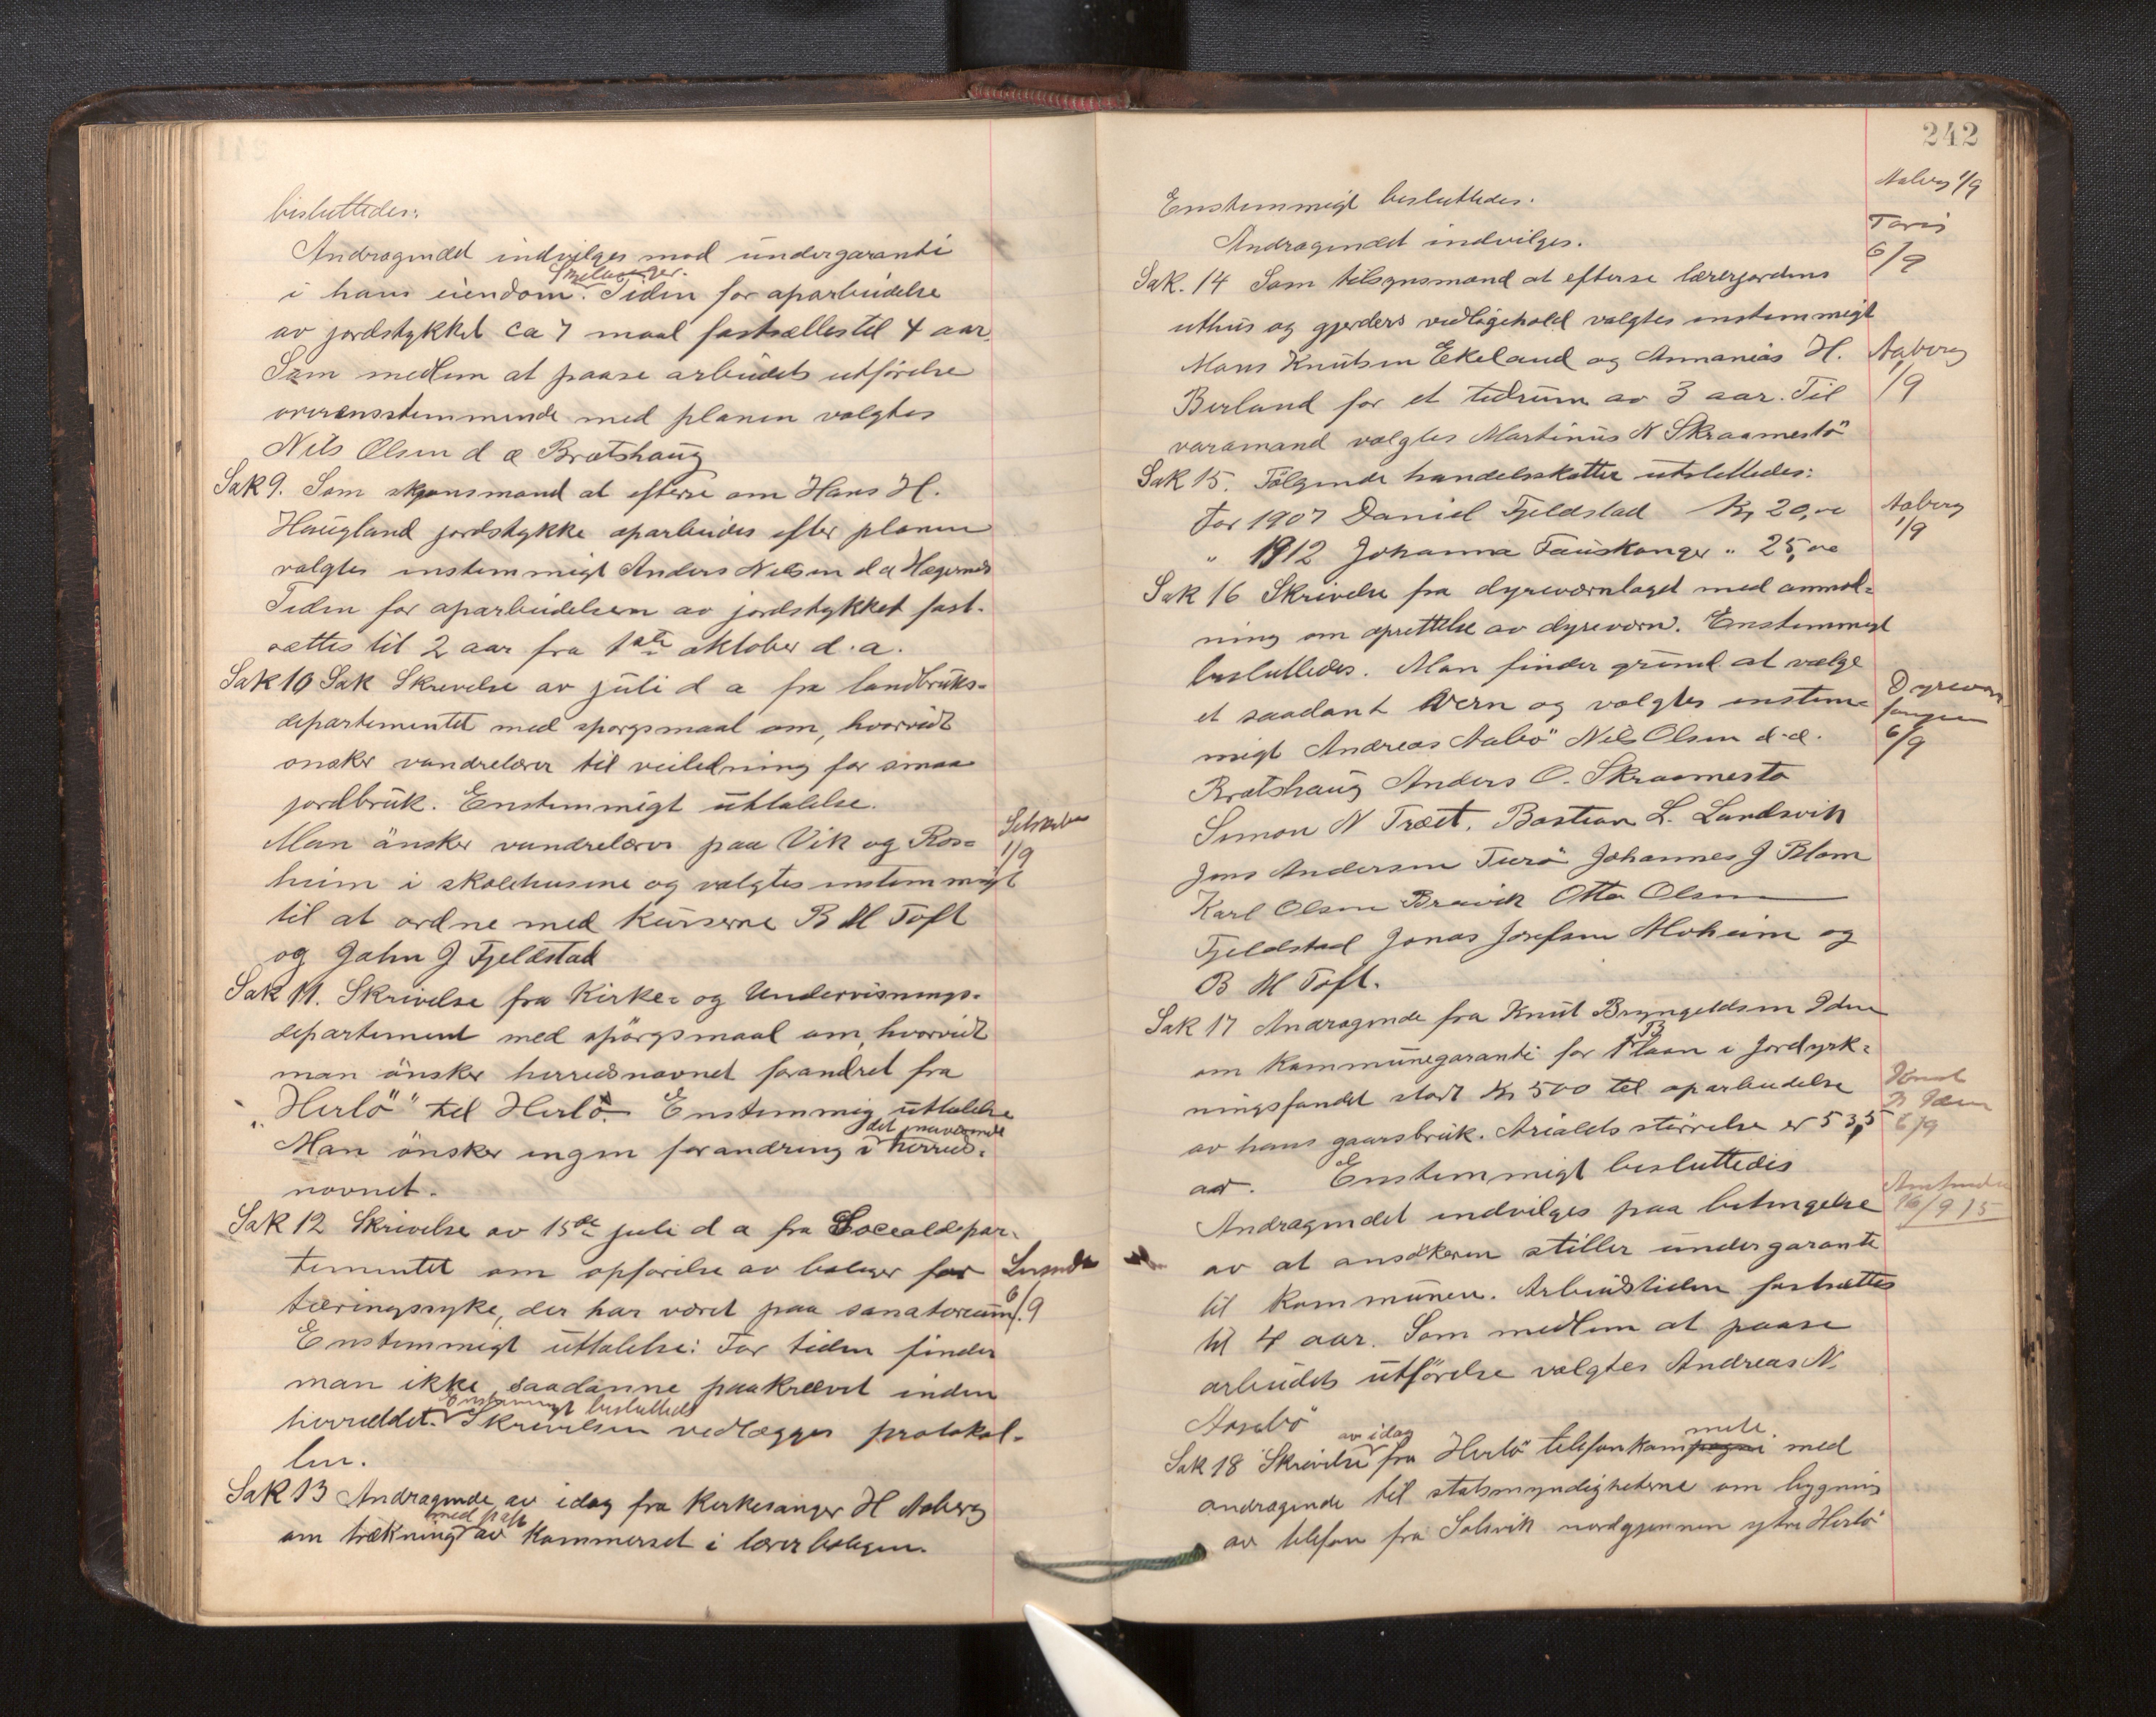 besluttedes:
Andragendet indvilges mod undergaranti
i hans eiendom Smelværger. Tiden for oparbeidelse
av jordstykket ca 7 maal fastsættes til 4 aar.
Som medlem at paase arbeidets utförelse
overensstemmende med planen valgtes
Nils Olsen d æ Bratshaug
Sak 9. Som skjønsmand at efterse om Hans H.
Haugland jordstykke oparbeides efter planen
valgtes enstemmigt Anders Nilsen d æ Hagenes
Tiden for oparbeidelsen av jordstykket fast-
sættes til 2 aar fra 1ste oktober d.a.
Sak 10 Sak Skrivelse av juli d a fra landbruks-
departementet med spørgsmaal om, hvorvidt
ønsker vandrelærer til veiledning for smaa
jordbruk. Enstemmigt uttalelse.
Man ønsker vandrelærer paa Vik og Ros=
heim i skolehusene og valgtes enstemmigt
til at ordne med kurserne B M Toft
og John J Fjeldstad
1/9
Sak 11. Skrivelse fra Kirke= og Undervisnings-
departement med spörgsmaal om, hvorvidt
man önsker herredsnavnet forandret fra
"Herlö" til Herlø. Enstemmig uttalelse
Man önsker ingen forandring i det nuværende herreds-
navnet.
Sak 12 Skrivelse av 15de juli d a fra Socealdepar-
tementet om opførelse av boliger for
tæringssyke, der har været paa sanatorium.
6/9
Enstemmigt uttalelse: For tiden finder
man ikke saadanne paakrævet inden
herreddet. Enstemmigt besluttedes Skrivelsen vedlægges protokol-
len.
Sak 13 Andragende av idag fra Kirkesanger H Aaberg
om trækning med papp av kammerset i lærerboligen.
242
Enstemmigt besluttedes.
Andragendet indvilges.
Aaberg 1/9
6/9
Sak. 14 Som tilsynsmænd at efterse lærerjordens
uthus og gjerders vedligehold valgtes enstemmigt
Mons Knutsen Ekeland og Annanias H.
Berland for et tidsrum av 3 aar. Til
varamand valgtes Martinus N Skraamestö
Aaberg
1/9
Sak 15. Fölgende handelsskatter utslettedes:
For 1907 Daniel Fjeldstad Kr 20,00
" 1912 Johanna Fauskanger " 25,00
Aaberg
1/9
Sak 16 Skrivelse fra dyreværnlaget med anmod=
ning om oprettelse av dyreværn. Enstemmigt
besluttedes. Man finder grund at vælge
et saadant værn og valgtes enstem=
migt Andreas Aabö Nils Olsen d.æ.
Bratshaug Anders O. Skraamestø
Simon N Træet, Bastian L. Landsvik
Jens Andersen Turö Johannes J Blom
Karl Olsen Brævik Otto Olsen
Fjeldstad Jonas Josefsen Moheim og
B M Toft.
6/9
Sak 17 Andragende fra Knut Bryngeldsen Iden
om kommunegaranti for laan i Jordyrk=
ningsfondet stort Kr 500 til oparbeidelse
av hans gaarsbruk. Arialets störrelse er 53,5
ar. Enstemmigt besluttedes
Andragendet indvilges paa betingelse
av at ansökeren stiller undergaranti
til kommunen. Arbeidstiden fastsættes
til 4 aar. Som medlem at paase
arbeidets utförelse valgtes Andreas N.
Aasebö
Knut
B Iden
6/9
16/9 15
Sak 18 Skrivelse av idag fra Herlö telefonkomite med
andragende til statsmyndigheterne om bygning
av telefon fra Solsvik nordgjennem ytre Herlö